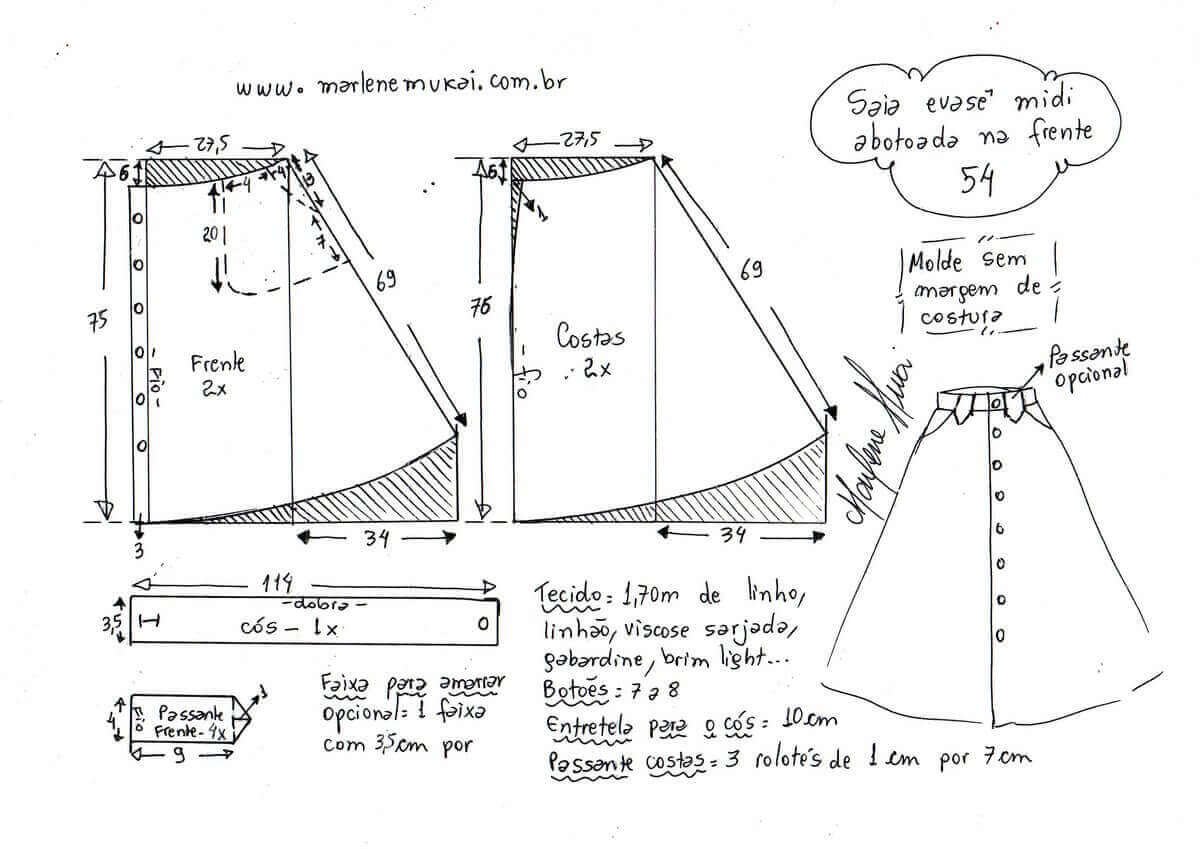 www.marlenemukai.com.br
Saia evasê midi
abotoada na frente
54
Molde sem
margem de
costura
27,5
6
4
4
3
7
20
69
75
Frente
2x
Fio
34
3
27,5
6
1
69
76
Costas
2x
Fio
34
Marlene Mukai
Passante
opcional
114
-dobra-
3,5
cós - 1x
4
Fio
Passante
Frente-4x
1
9
Faixa para amarrar
opcional: 1 faixa
com 3,5cm por
Tecido: 1,70m de linho,
linhão, viscose sarjada,
gabardine, brim light...
Botões: 7 a 8
Entretela para o cós = 10cm
Passante costas = 3 rolotés de 1cm por 7cm